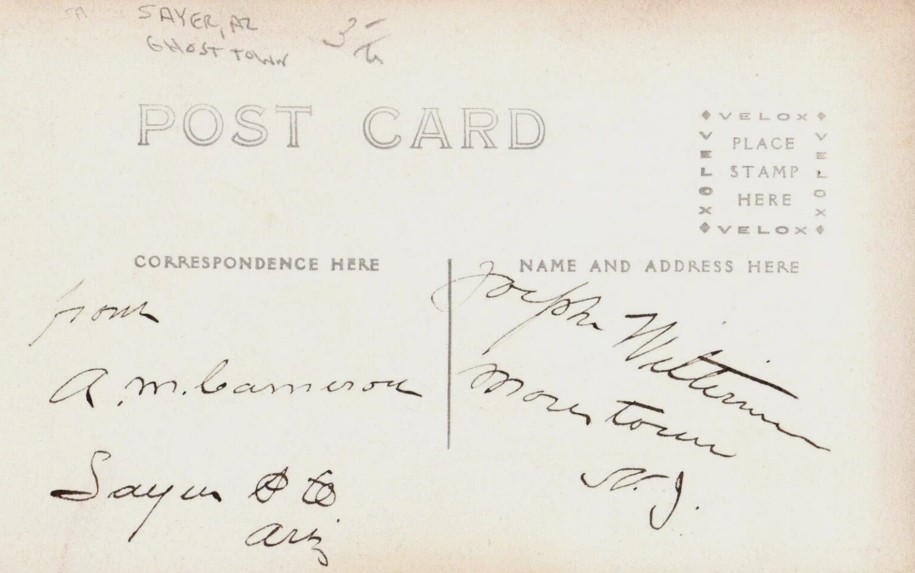 SAYER, AZ
GHOST TOWN
POST CARD
VELOX
VELOX
PLACE
STAMP
HERE
VELOX
VELOX
CORRESPONDENCE HERE
NAME AND ADDRESS HERE
from
A. M. Cameron
Sayer
Ariz
Joseph
Morristown
N. J.